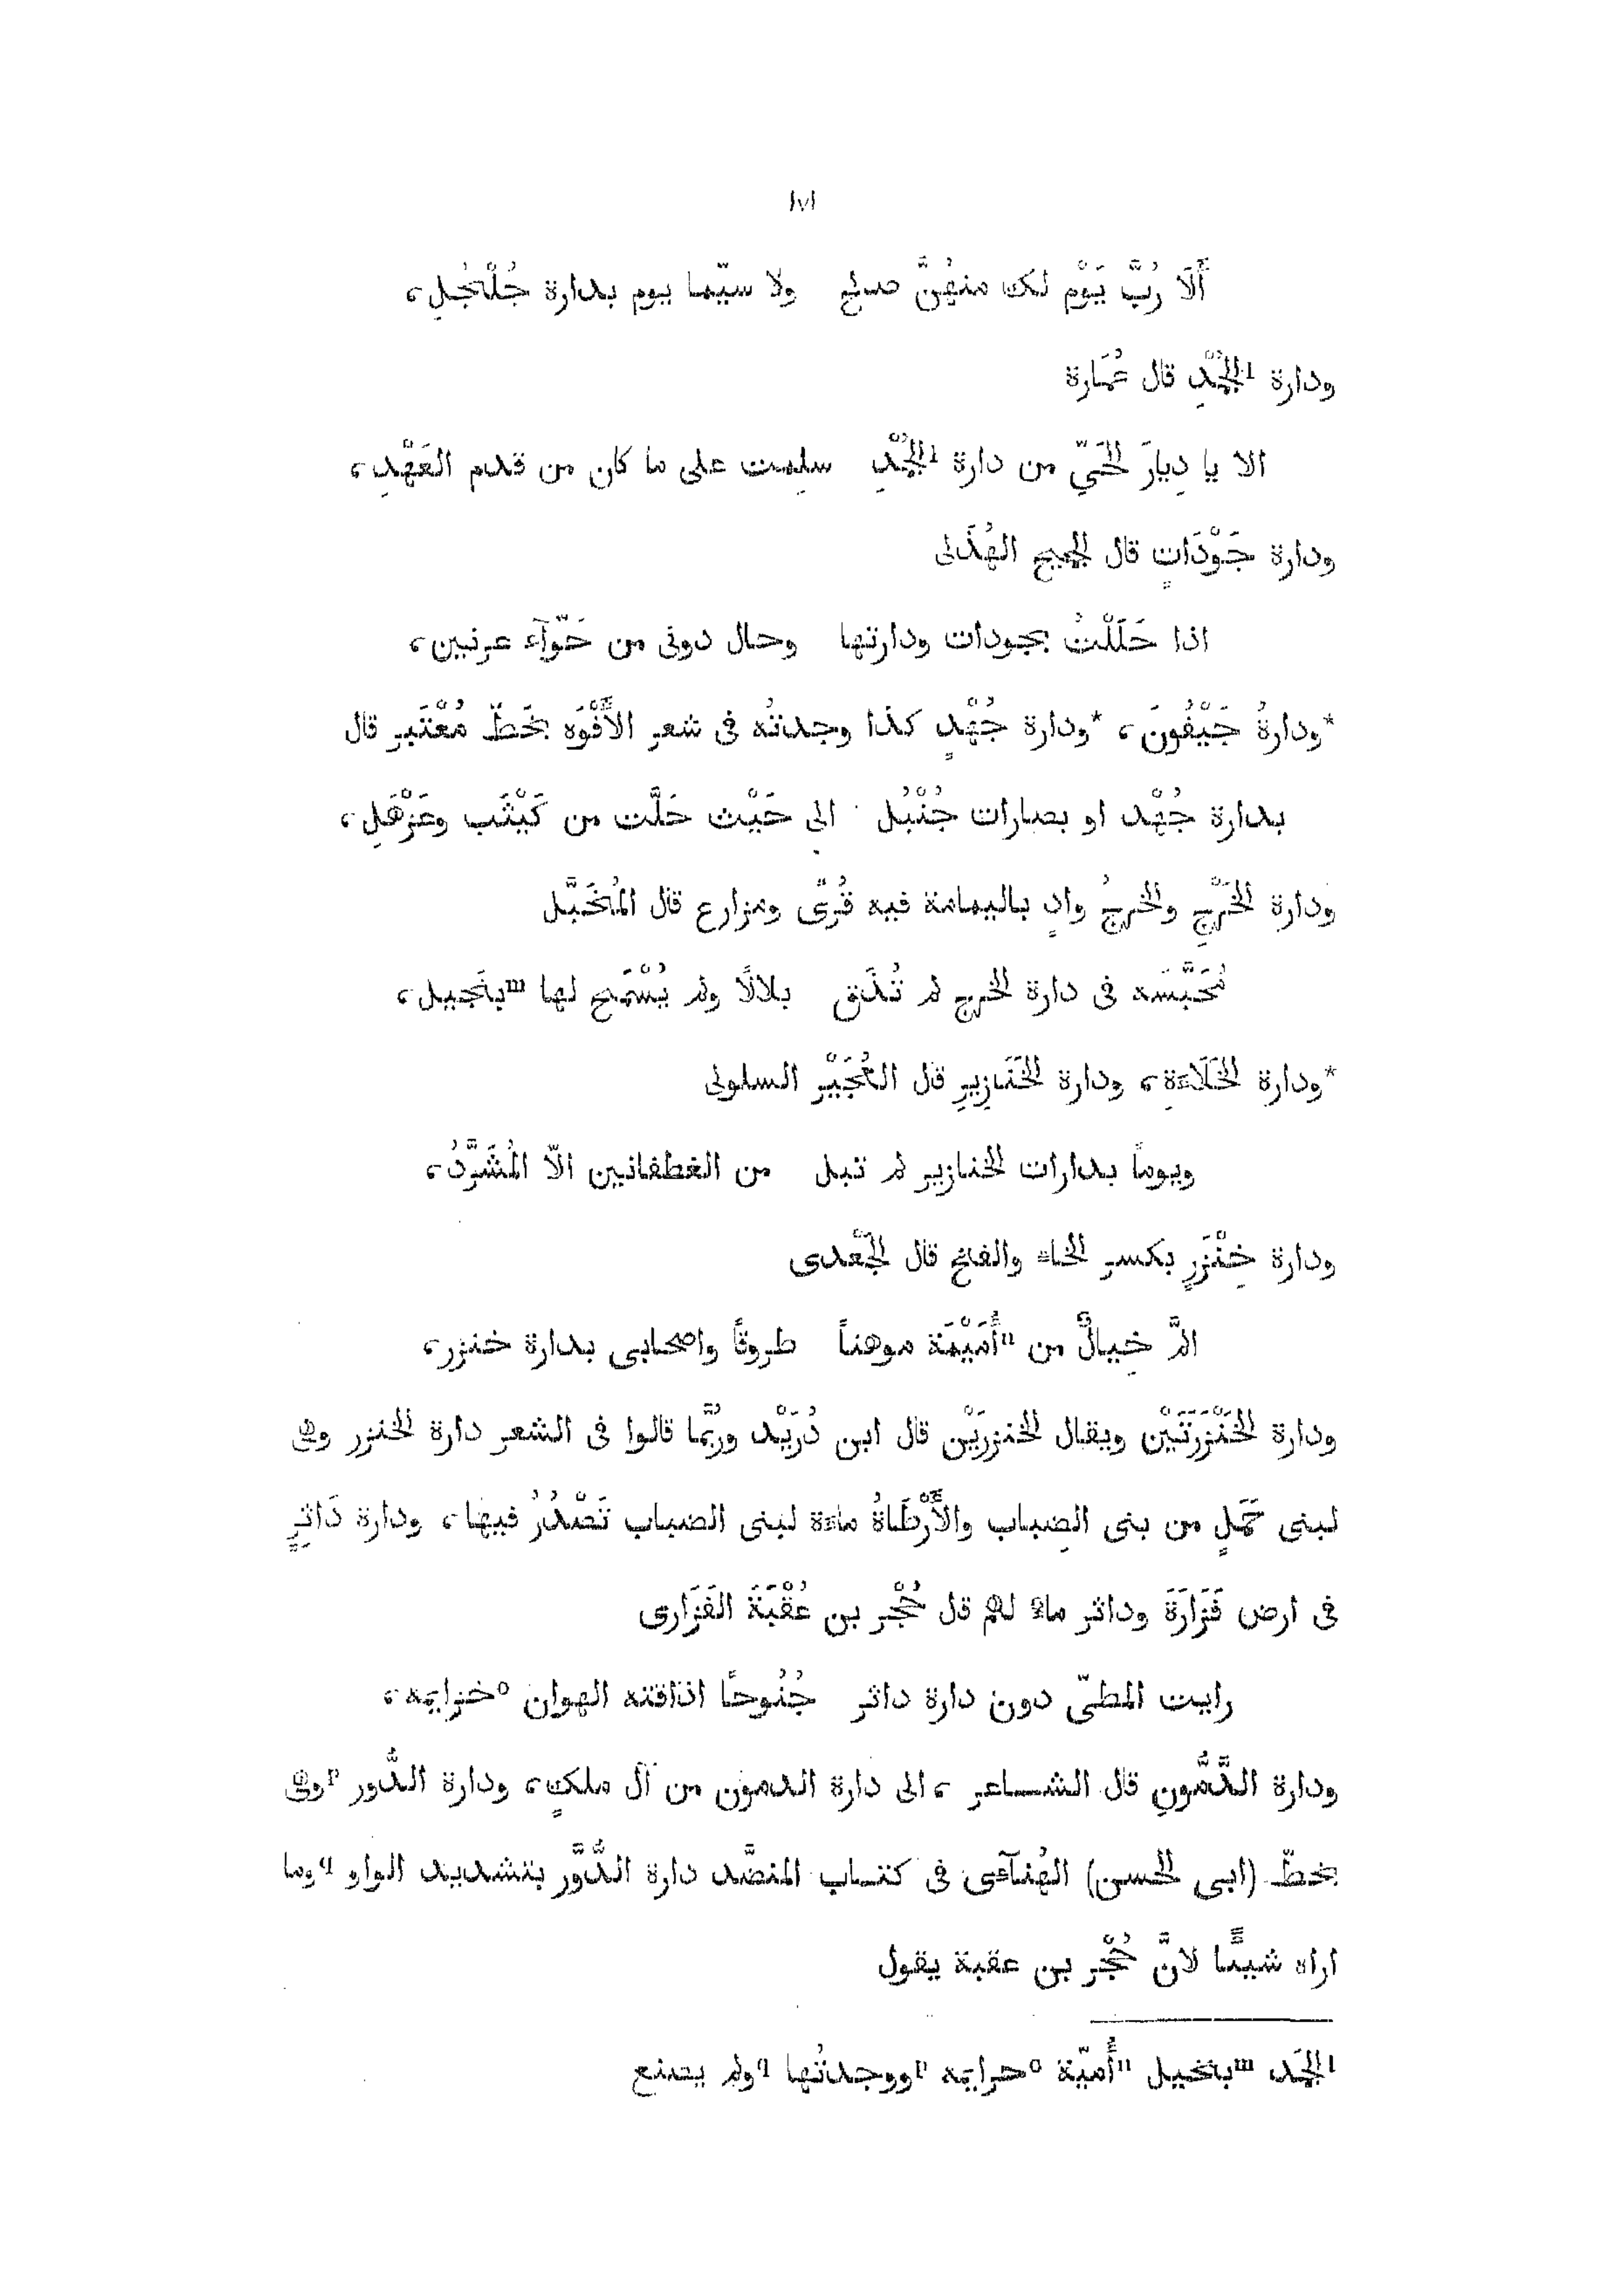 ١٧١
أَلَا رُبَّ يَوْمٍ لك منهُنَّ صالح ولا سيّما يوم بدارة جُلْجُلِ،
ودارة ¹الجُمْدِ قال عُمَارة
الا يا دِيارَ الحَىِّ من دارة ¹الجُمْدِ سلِمت على ما كان من قدم العَهْدِ،
ودارة جَوْدَاتٍ قال الجميح الهُذَلى
اذا حَلَلْتُ بجودات ودارتها وحال دونى من حَوّآء عرنين،
*ودارةُ جَيْفُونَ، *ودارة جُهْدٍ كذا وجدتُه فى شعر الأَفْوَه بخَطّ مُعْتَبر قال
بدارة جُهْد او بصارات جُنْبُل الى حَيْث حَلَّت من كَيْثَب وعَزْهَلِ،
ودارة الخَرْجِ والخرجُ وادٍ باليمامة فيه قُرًى ومزارع قال المُخَبَّل
مُحَبَّسَه فى دارة الخرج لم تُذَق بلالًا ولم يُسْمَح لها ᵐبنَجيل،
*ودارة الخَلَاءَةِ، ودارة الخَنَازِيرِ قال العُجَيْر السلولى
ويومًا بدارات الخنازير لم تبل من الغطفانيين الّا المُشَرَّدُ،
ودارة خِنْزَرٍ بكسر الخاء والفتح قال الجَعْدى
المَّ خِيالٌ من ⁿأُمَيْمَة موهناً طروقًا واصحابى بدارة خنزر،
ودارة الخَنْزَرَتَيْن ويقال الخنزرَيْن قال ابن دُرَيْد وربّما قالوا فى الشعر دارة الخنزر وهى
لبنى حَمَلٍ من بنى الضِباب والأَرْطَاةُ ماءة لبنى الضباب تَصْدُرُ فيها، ودارة دَاثِرٍ
فى ارض فَزَارَةَ وداثر ماء لهم قال حُجْر بن عُقْبَةَ الفَزَارى
رايت المطىّ دون دارة داثر جُنُوحًا اذاقته الهوان ᵒخزايمه،
ودارة الدَّمُّونِ قال الشاعر، الى دارة الدمون من آل ملكٍ، ودارة الدُّور ᵖوهى
بخطّ (ابى الحسن) الهُنآءى فى كتاب المنضَّد دارة الدُّوَّر بتشديد الواو ᑫوما
اراه شيئًا لانَّ حُجْر بن عقبة يقول
¹الجَمَد ᵐبنخيل ⁿأُميّة ᵒحرايمه ᵖووجدتُها ᑫولم يصنع